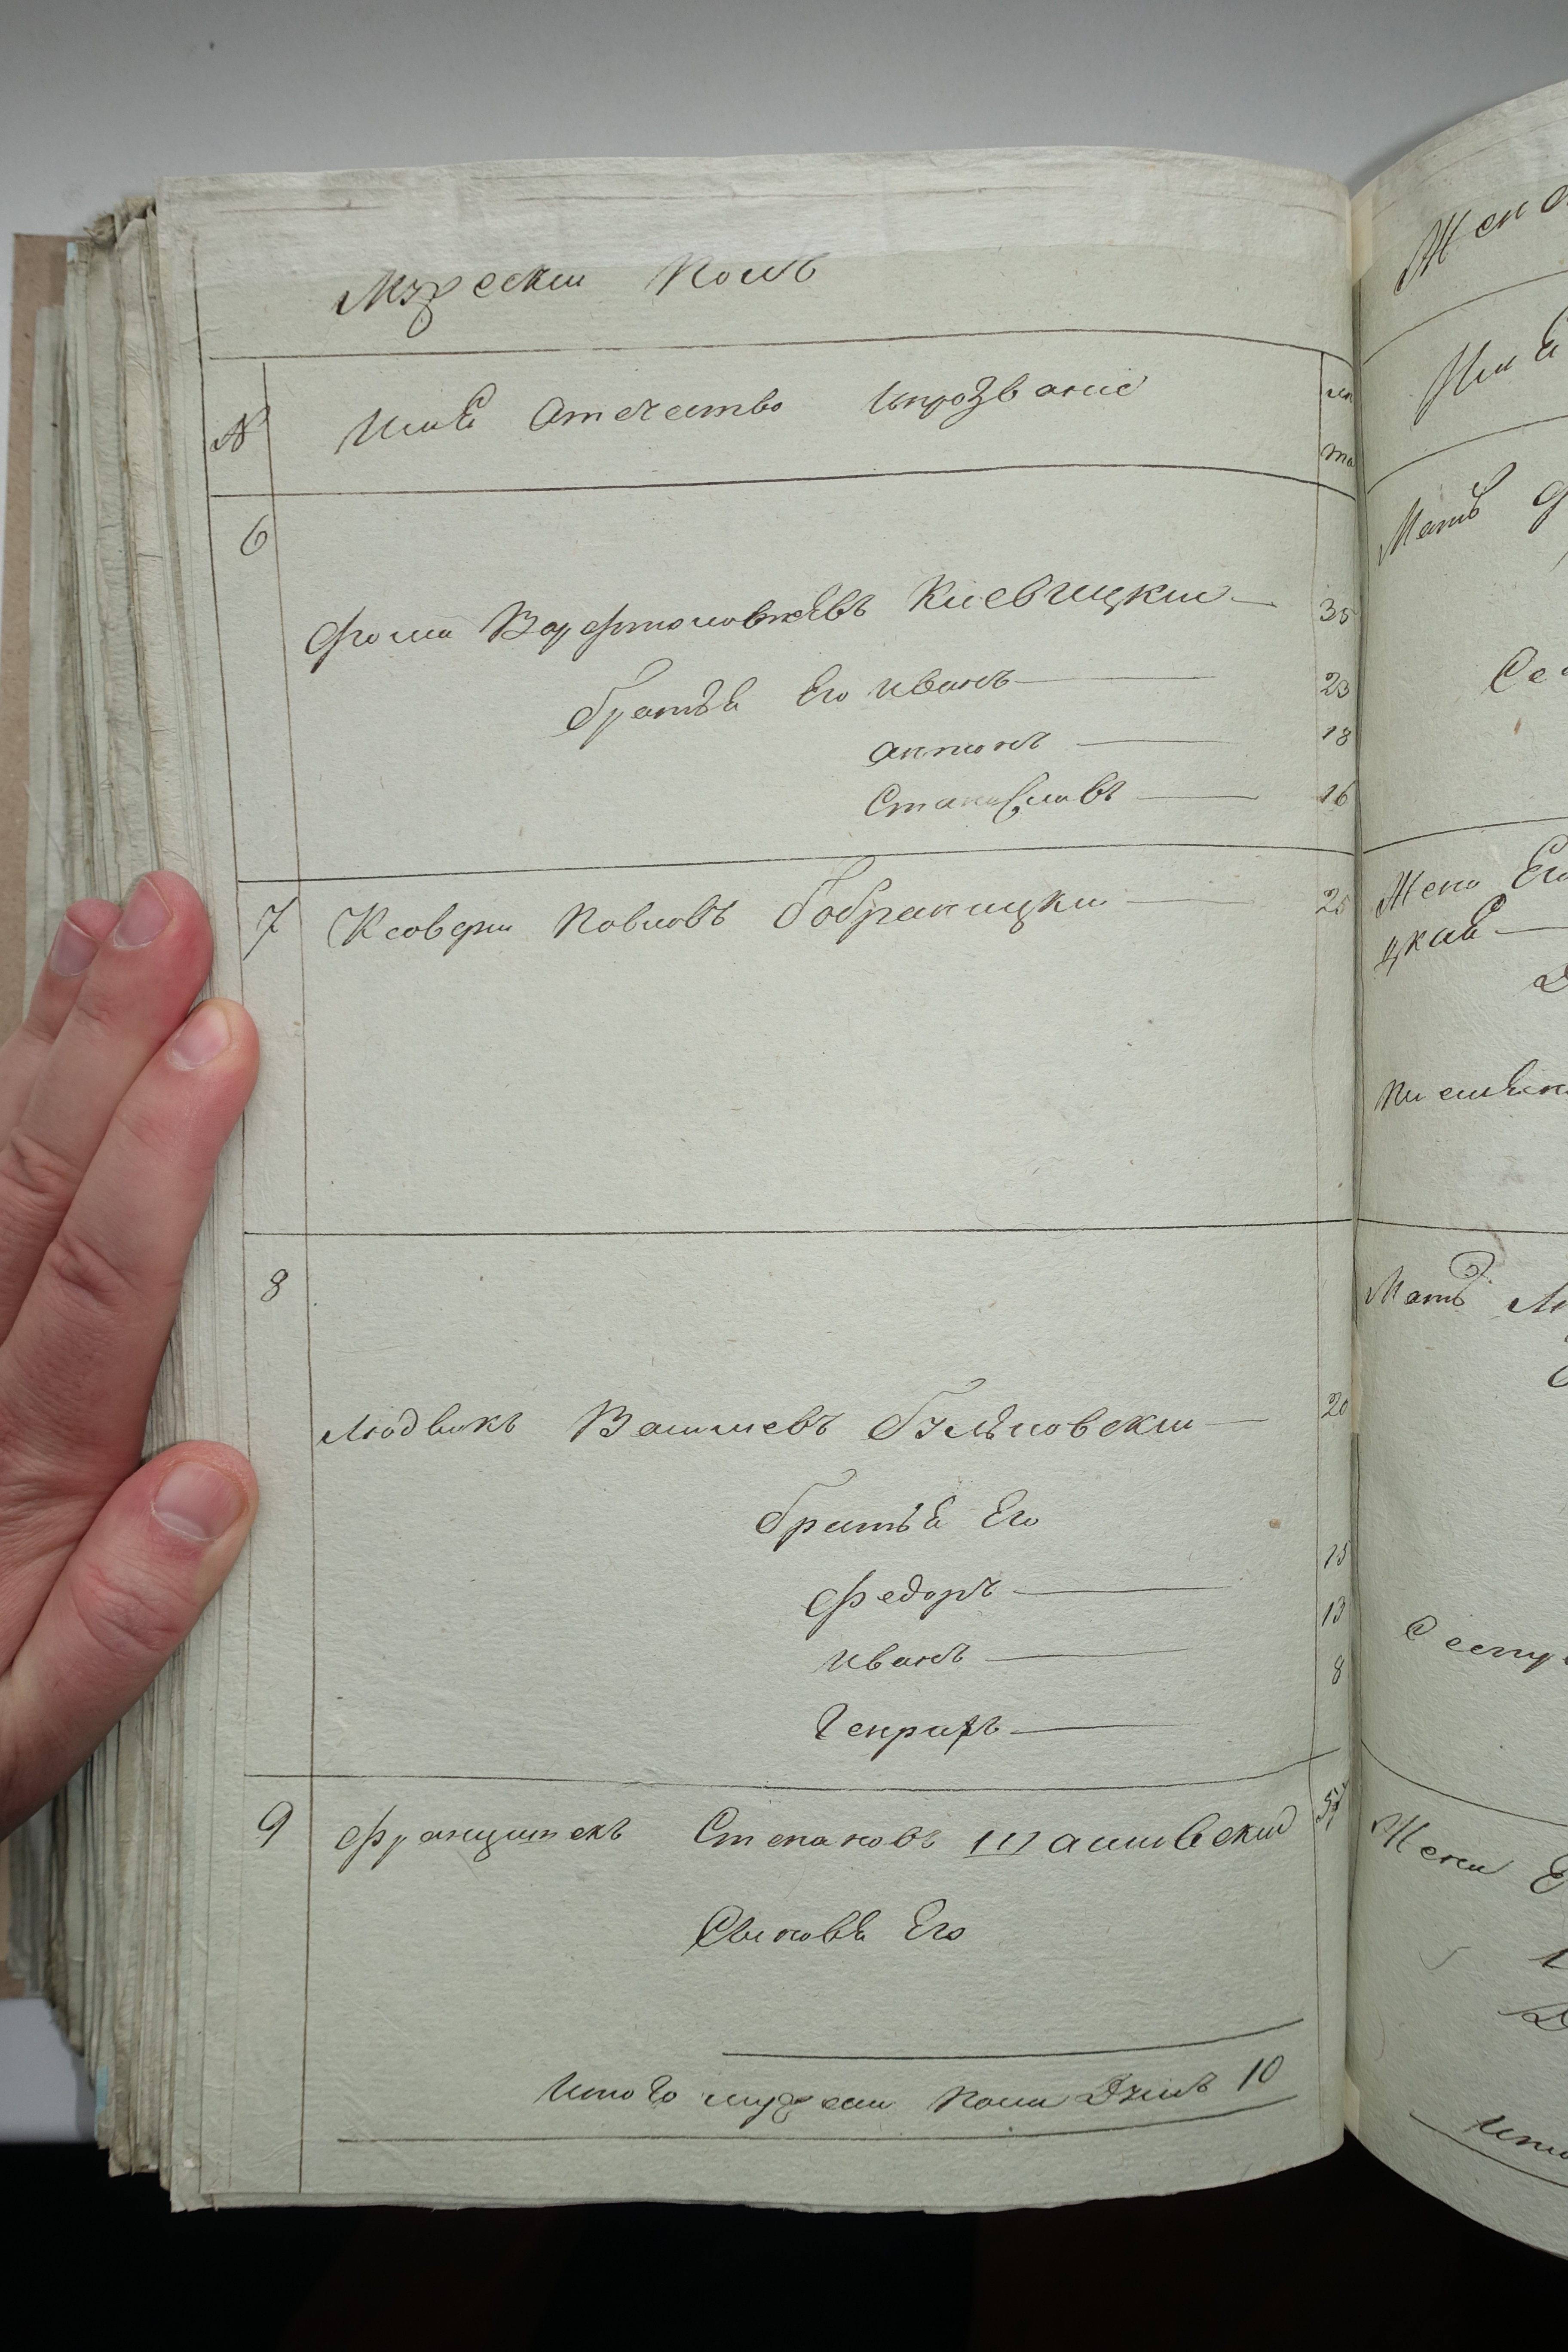 Мужескии Полъ
№ Имѣ Отечество Ипрозвание
6
Фома Варфтоломѣевъ Киевицкии 35
братьѣ Его Иванъ 23
Антонъ 18
Станиславъ 16
7 Ксоверии Павловъ бобраницкии 25
8
Людвикъ Васильевъ булѣновскии 20
братьѣ Его
Федоръ 15
Иванъ 13
Генрихъ 8
9 Францишекъ Степановъ Шашковский
Сыновѣ Его
Итого мужеска пола Душъ 10
Жено
Имѣ
Мать
Се
Жена Его
цкаѣ
Мать
Жена